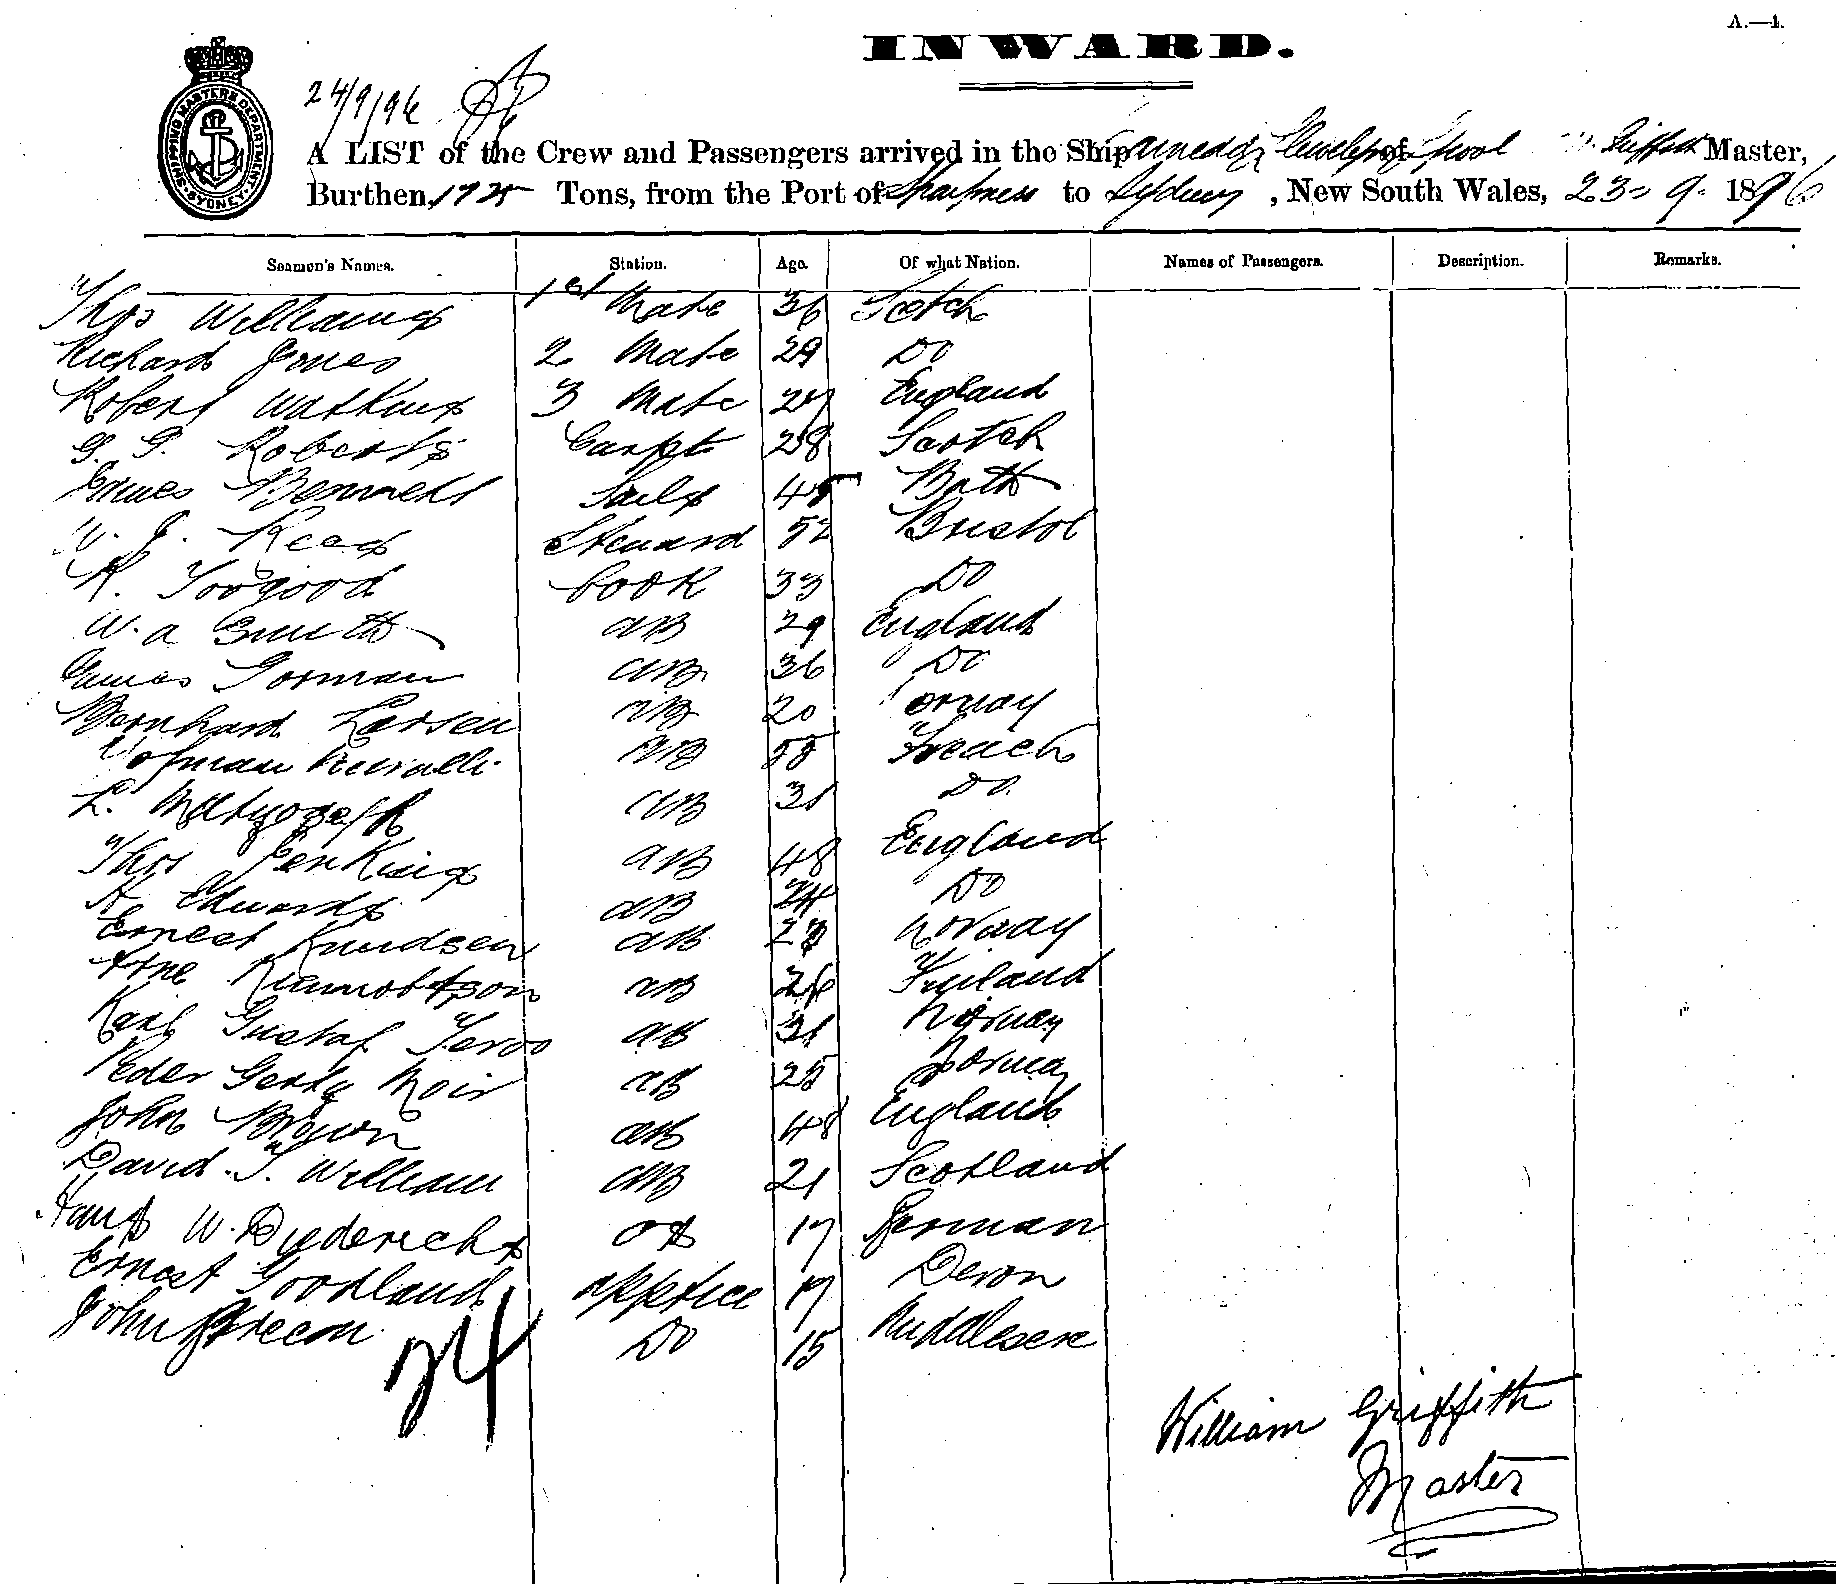 A.—1.
INWARD.
SHIPPING MASTERS DEPARTMENT SYDNEY
24/9/96
A LIST of the Crew and Passengers arrived in the Ship Carnedd Llewelyn of Lpool W. Griffith Master,
Burthen 1725 Tons, from the Port of Sharpness to Sydney, New South Wales, 23-9-1896
Seamen's Names. Station. Age. Of what Nation. Names of Passengers. Description. Remarks.
Thos Williams 1st Mate 36 Scotch
Richard Jones 2 Mate 29 Do
Robert Watkins 3 Mate 27 England
G. G. Roberts Carpt 28 Scotch
James Bennett Sails 45 Bath
W. J. Rees Steward 52 Bristol
R. Toogood Cook 33 Do
W. A Smith AB 29 England
James Gorman AB 36 Do
Bernhard Larsen AB 20 Norway
AB 55 French
L. AB 31 Do.
Thos Jenkins AB 48 England
A Edwards AB 24 Do
Ernest Knudsen AB Norway
Arne AB 26 Finland
Karl Gustaf AB 31 Norway
Peder Moir AB 25 Norway
John Brown AB 48 England
David. T. William AB 21 Scotland
Hans W. Dyderichs OS 17 German
Ernest Goodland apptice 17 Devon
John Breem Do 15 Middlesex
24
William Griffith
Master